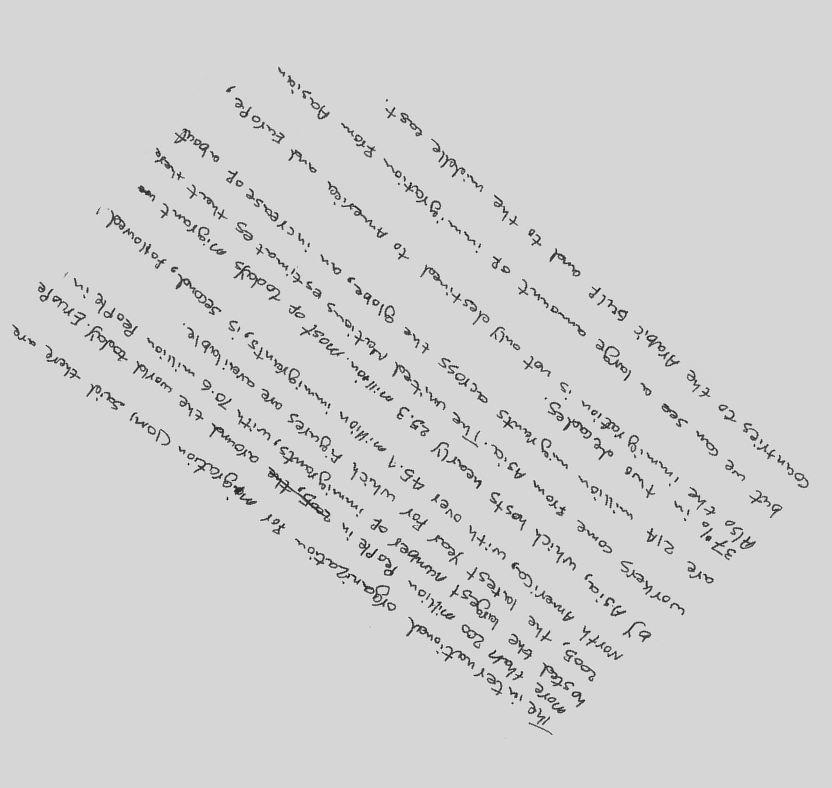 The international organization for migration (IOM) said there are
more than 200 million people in around the world today. Eruope
hosted the largest number of immigrants, with 70.6 million people in
2005, the latest year for which figures are available.
North America, with over 45.1 million immigrants, is second, followed
by Asia, which hosts nearly 25.3 million. most of todays migrant
workers come from Asia. The united Nations estimates that there
are 214 million migrants across the globe, an increase of about
37% in two decades.
Also the immigration is not only destined to America and Europe,
but we can see a large amount of immigration from Aasian
countries to the Arabic Gulf and to the middle east.